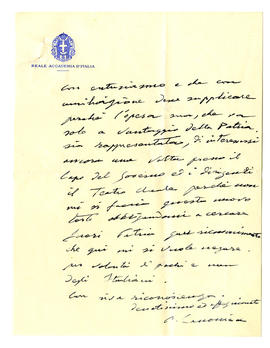 REALE ACCADEMIA D'ITALIA
con entusiasmo e che con
umiliazione deve supplicare
perchè l'opera sua, che va
solo a vantaggio della Patria
sia rappresentata, di
ancora una volta presso il
Capo del Governo ed i dirigenti
il Teatro perchè non
mi si faccia questo nuovo
torto obbligandomi a cercare
fuori Patria quel riconoscimento
che qui mi si vuole negare
per volontà di pochi e non
degli Italiani.
Con viva riconoscenza